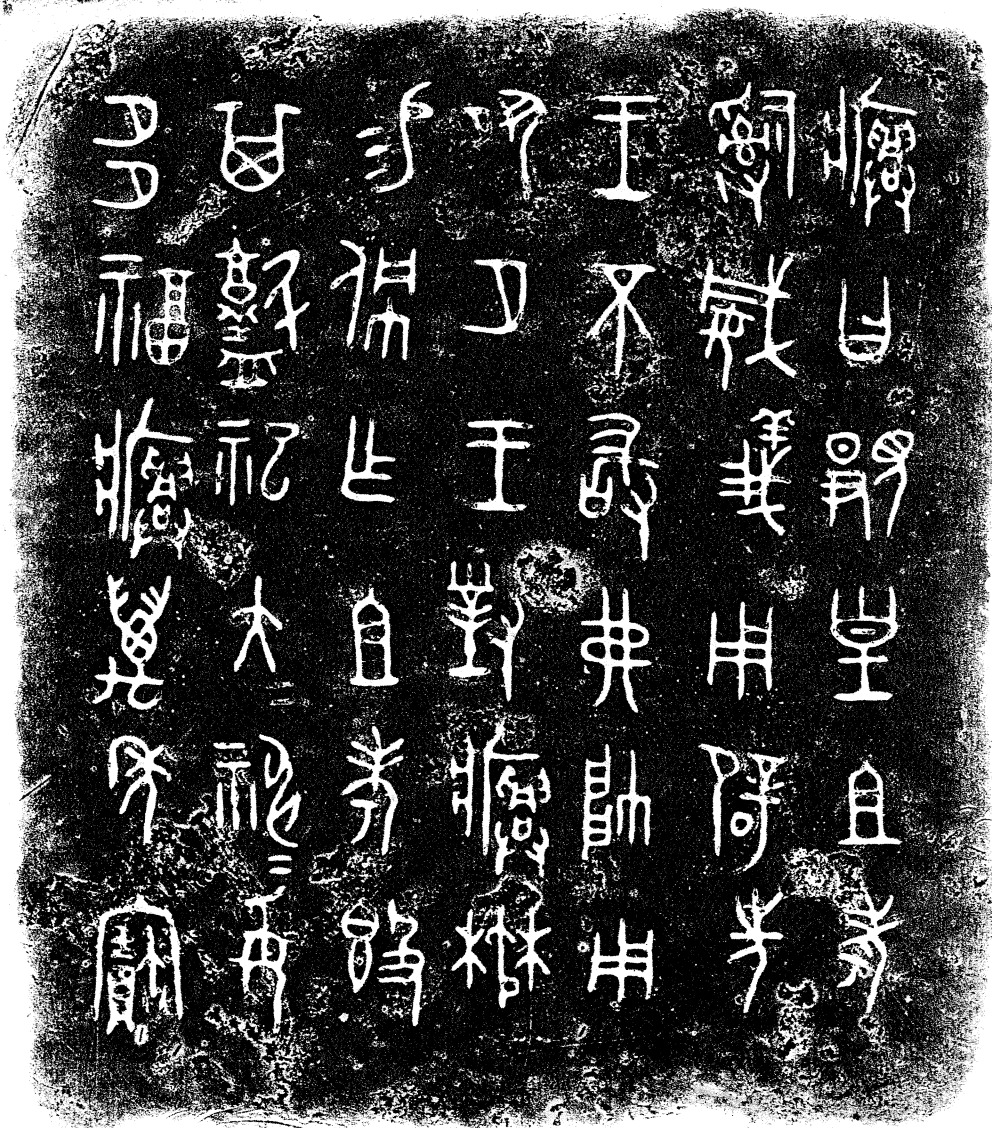 𤼈曰覭皇且考
𤔲威義用辟先
王不敢弗帥用
夙夕王對𤼈楙
易佩乍且考𣪘
其盩祀大＝神＝
多福𤼈萬年寶